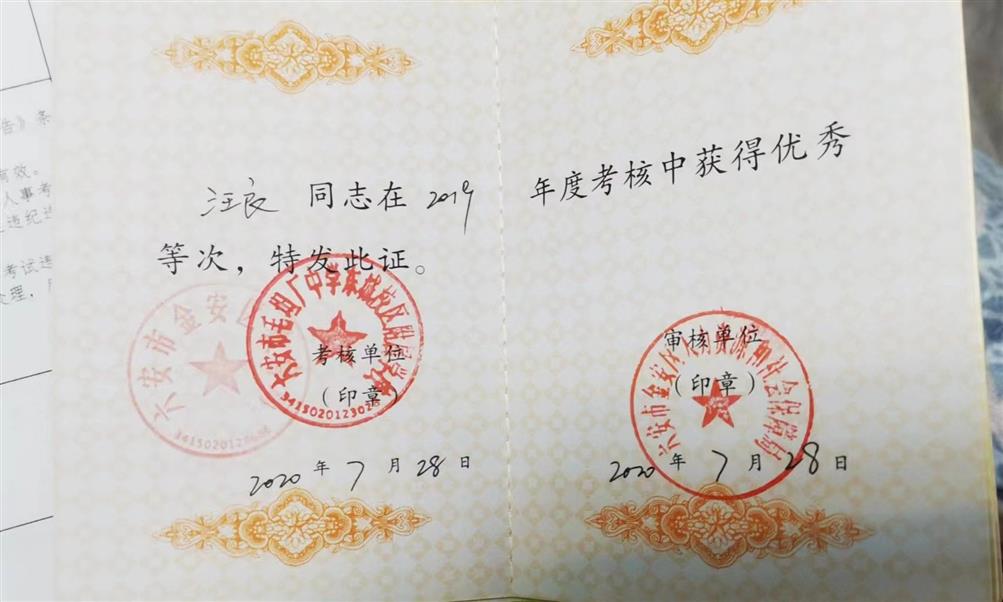 告》条
有效。
人事考
违纪违
考试违
处理，
汪良 同志在 2019 年度考核中获得优秀
等次，特发此证。
六安市金安区
3415020120
六安市毛坦厂中学东城校区
考核单位
（印章）
3415020123028
2020 年 7 月 28 日
六安市金安区人力资源和社会保障局
审核单位
（印章）
2020 年 7 月 28 日